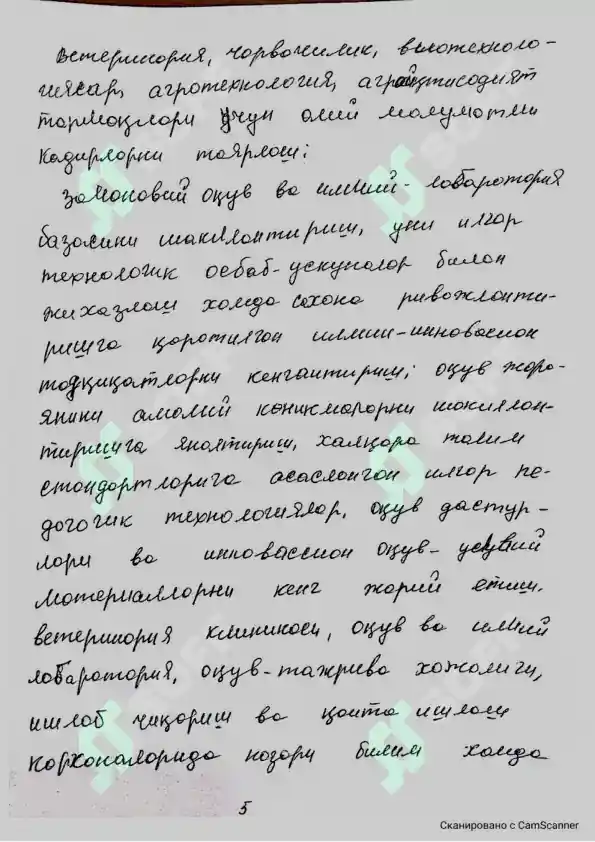 Ветеринория, чорвочилик, виотехноло-
гиялар, агротехнология, агроиқтисодият
тармоқлори учун олий малумотли
кадирлорни таярлош;
Замоновий оқув ва илмий-лобаротория
базосини шакллонтириш, уни илгор
технологик осбаб-ускунолор билон
жихазлош хомда сохона ривожлонти-
ришга қоротилгон илмий-инновасион
тодқиқатлорни кенгаитириш; оқув жоро-
янини амолий коникмолорни шокиллон-
тиришга янолтириш, халқоро толим
стондортлорига асаслонгон илгор пе-
догогик технологиялор, оқув дастур-
лори во инновассион оқув-услубий
мотериаллорни кенг жорий етиш.
ветеринория клиникоси, оқув во илмий
лобаротория, оқув-тажрибо хожолиги,
ишлоб чиқориш во қоита ишлош
корхоналорида нозори билим хомда
5
Сканировано с CamScanner
SOFF